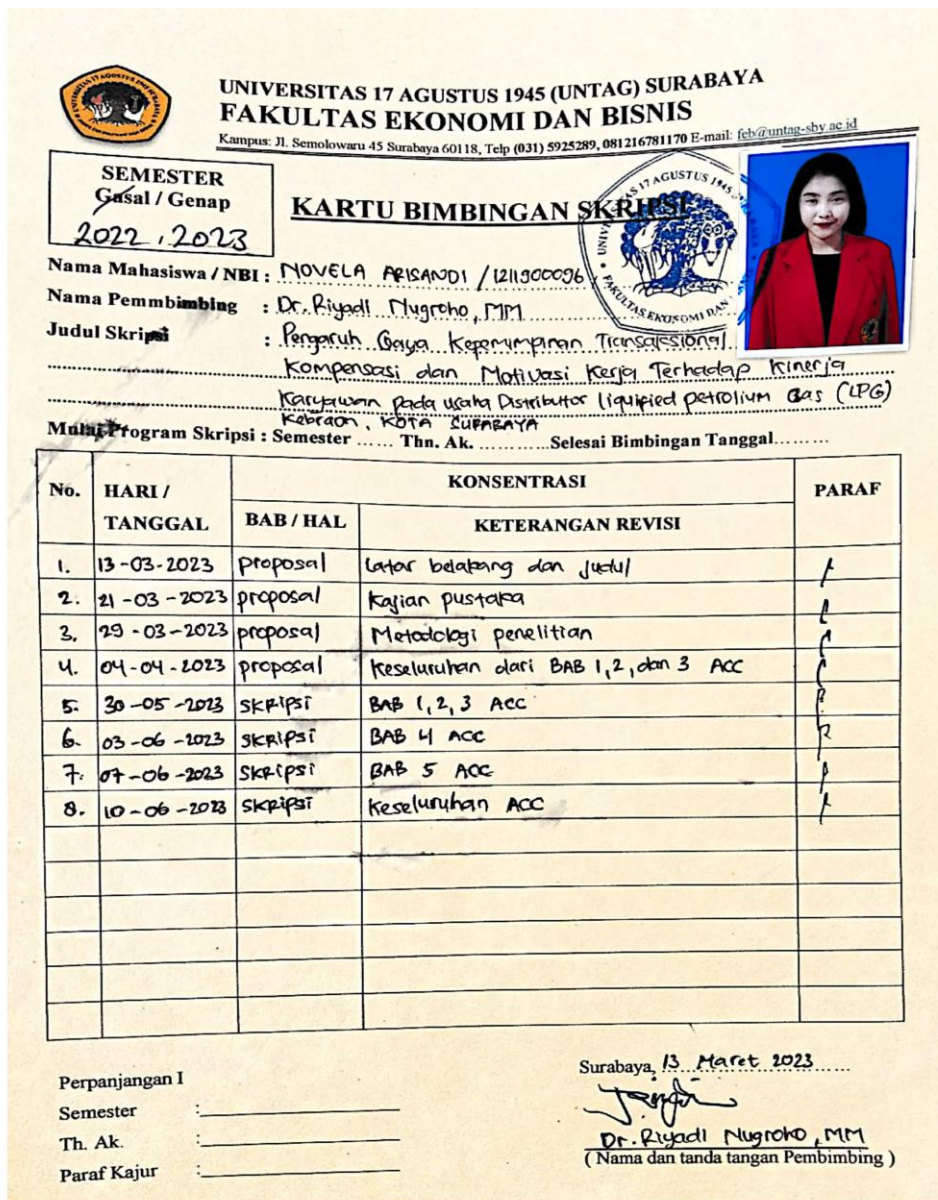 UNIVERSITAS 17 AGUSTUS 1945 (UNTAG) SURABAYA
FAKULTAS EKONOMI DAN BISNIS
Kampus: Jl. Semolowaru 45 Surabaya 60118, Telp (031) 5925289, 081216781170 E-mail: feb@untag-sby.ac.id
SEMESTER
Gasal / Genap
2022 , 2023
KARTU BIMBINGAN SKRIPSI
Nama Mahasiswa / NBI : NOVELA ARISANDI / 1211900096
Nama Pemmbimbing : Dr. Riyadi Nugroho, MM
Judul Skripsi : Pengaruh Gaya Kepemimpinan Transaksional
Kompensasi dan Motivasi Kerja Terhadap Kinerja
Karyawan pada usaha Distributor liquified petrolium Gas (LPG)
Kebraon, KOTA SURABAYA
Mulai Program Skripsi : Semester ...... Thn. Ak. ............Selesai Bimbingan Tanggal.........
No. HARI / TANGGAL KONSENTRASI PARAF
BAB / HAL KETERANGAN REVISI
1. 13-03-2023 proposal Latar belakang dan judul
2. 21-03-2023 proposal Kajian pustaka
3. 29-03-2023 proposal Metodologi penelitian
4. 04-04-2023 proposal Keseluruhan dari BAB 1,2, dan 3 ACC
5. 30-05-2023 SKRipsi BAB 1,2,3 ACC
6. 03-06-2023 SKRipsi BAB 4 ACC
7. 07-06-2023 SKRipsi BAB 5 ACC
8. 10-06-2023 SKRipsi Keseluruhan ACC
Surabaya, 13 Maret 2023
Perpanjangan I
Semester :
Th. Ak. :
Paraf Kajur :
Dr. Riyadi Nugroho, MM
( Nama dan tanda tangan Pembimbing )